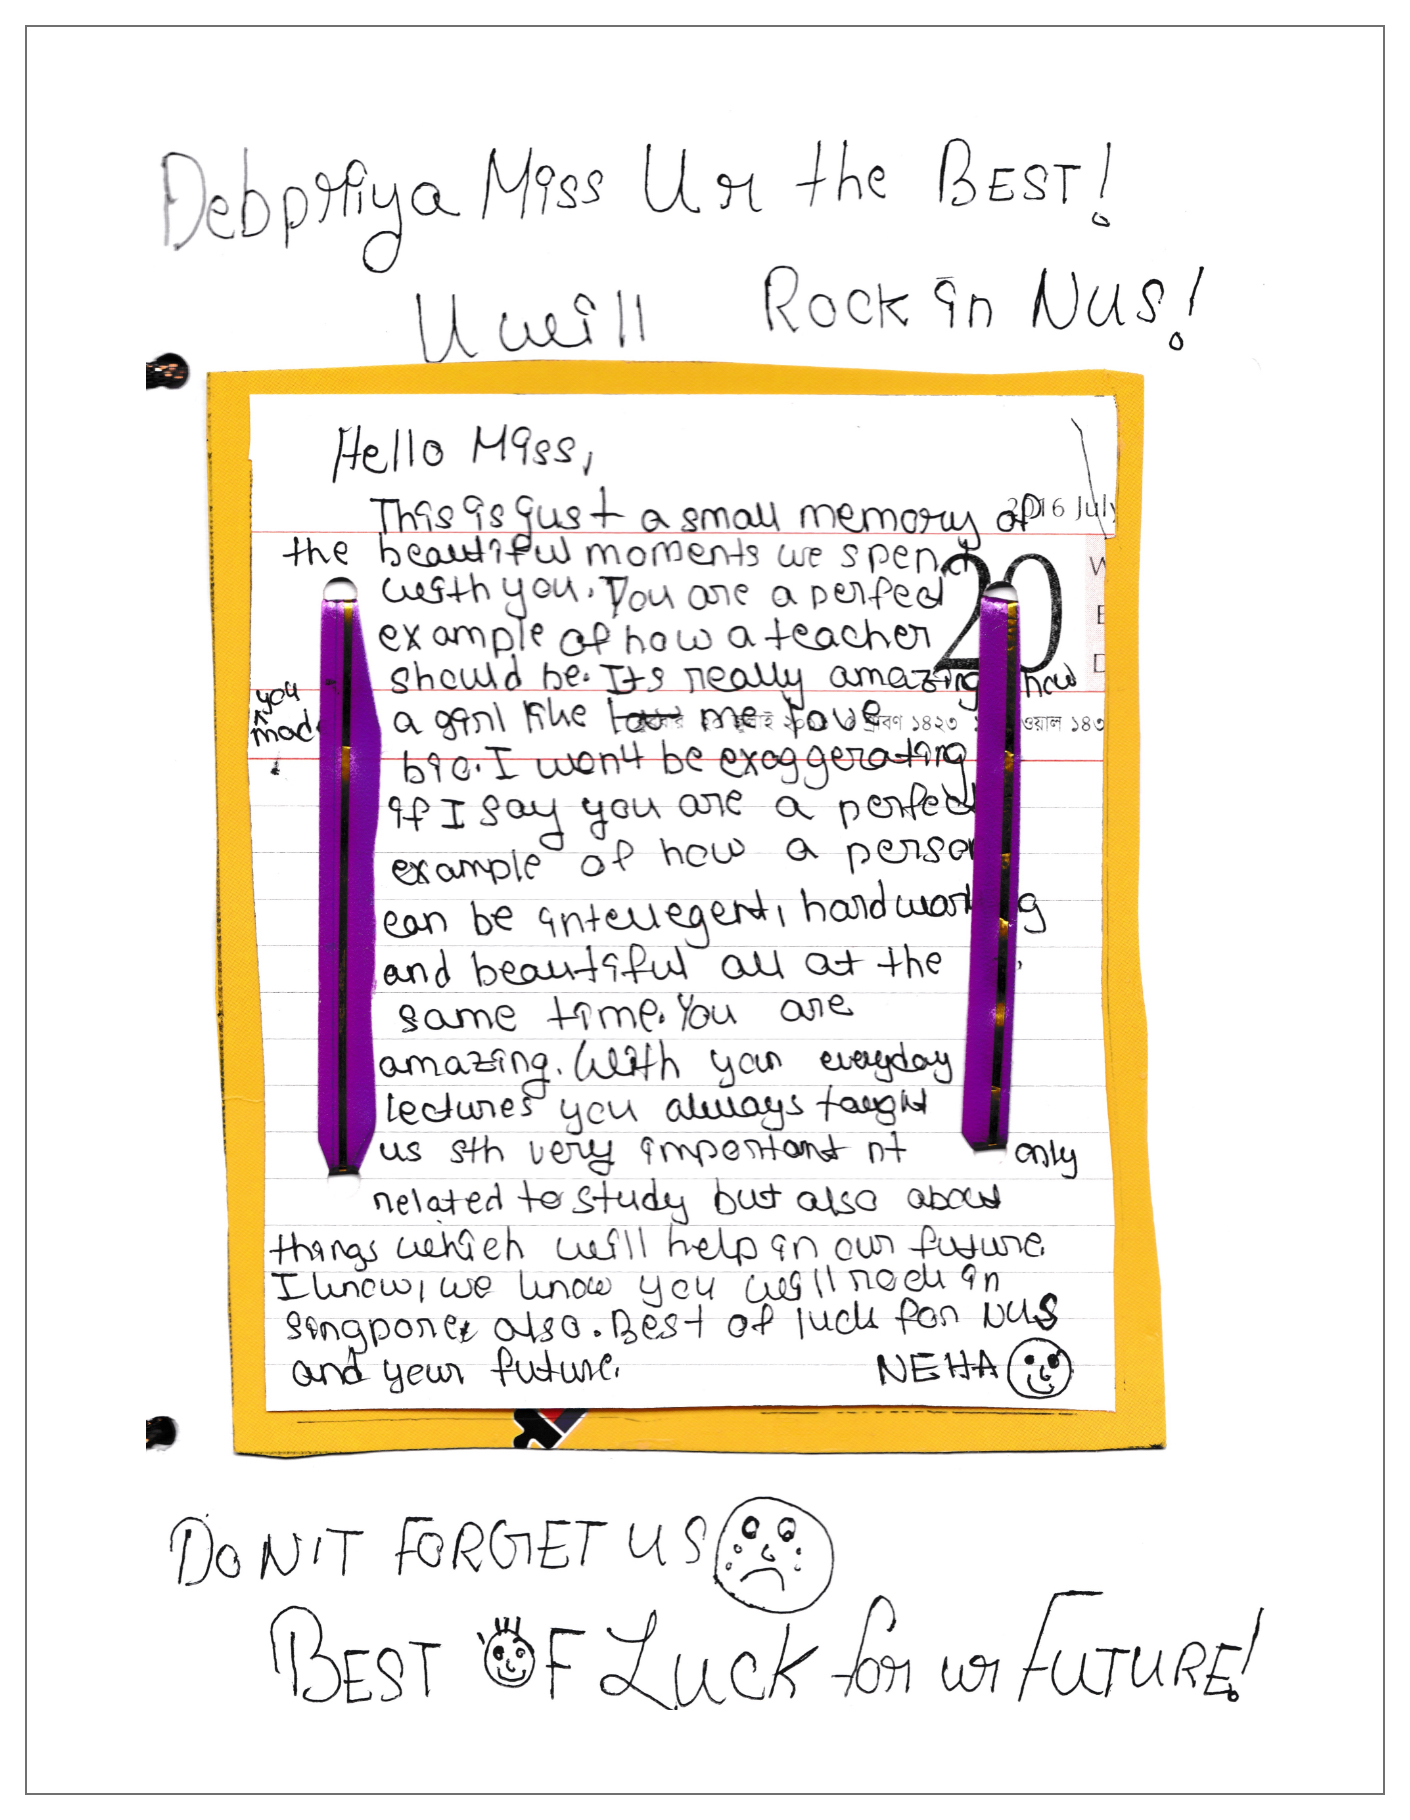 Debpriya Miss U r the BEST!
U will Rock in NUS!
Hello Miss,
This is just a small memory of
2016 July
the beautiful moments we spend
20
with you. You are a perfect
example of how a teacher
should be. Its really amazing how
a girl like me love
you
made
bio. I won't be exaggerating
if I say you are a perfect
example of how a person
can be intellegent, hardworking
and beautiful all at the
same time. You are
amazing. With your everyday
lectures you always taught
us sth very important nt only
related to study but also about
things which will help in our future.
I know, we know you will rock in
singpore also. Best of luck for NUS
and your future. NEHA
DON'T FORGET US
BEST OF LUCK for ur FUTURE!